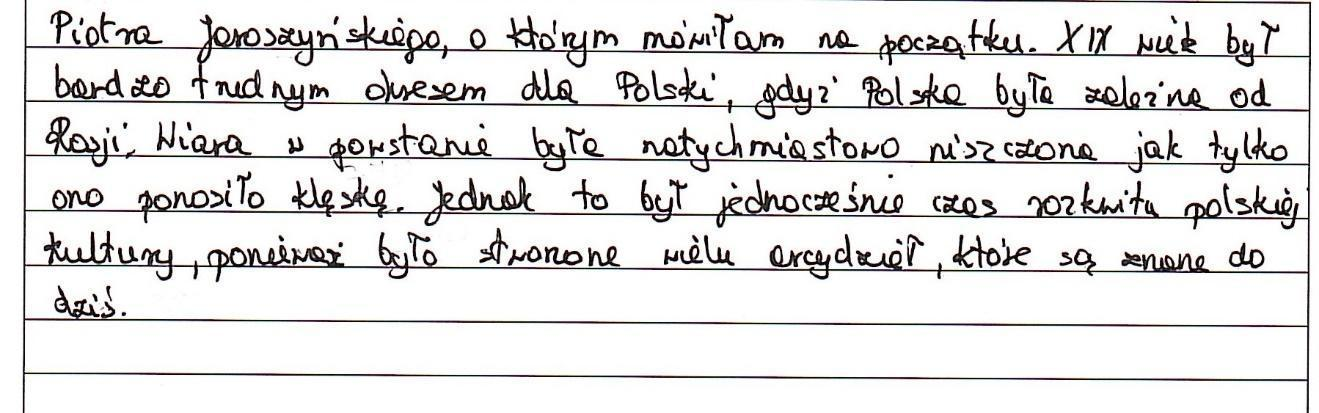 Piotra Jaroszyńskiego, o którym mówiłam na początku. XIX wiek był
bardzo trudnym okresem dla Polski, gdyż Polska była zależna od
Rosji. Wiara w powstanie była natychmiastowo niszczona jak tylko
ono ponosiło klęskę. Jednak to był jednocześnie czas rozkwitu polskiej
kultury, ponieważ było stworzone wielu arcydzieł, które są znane do
dziś.